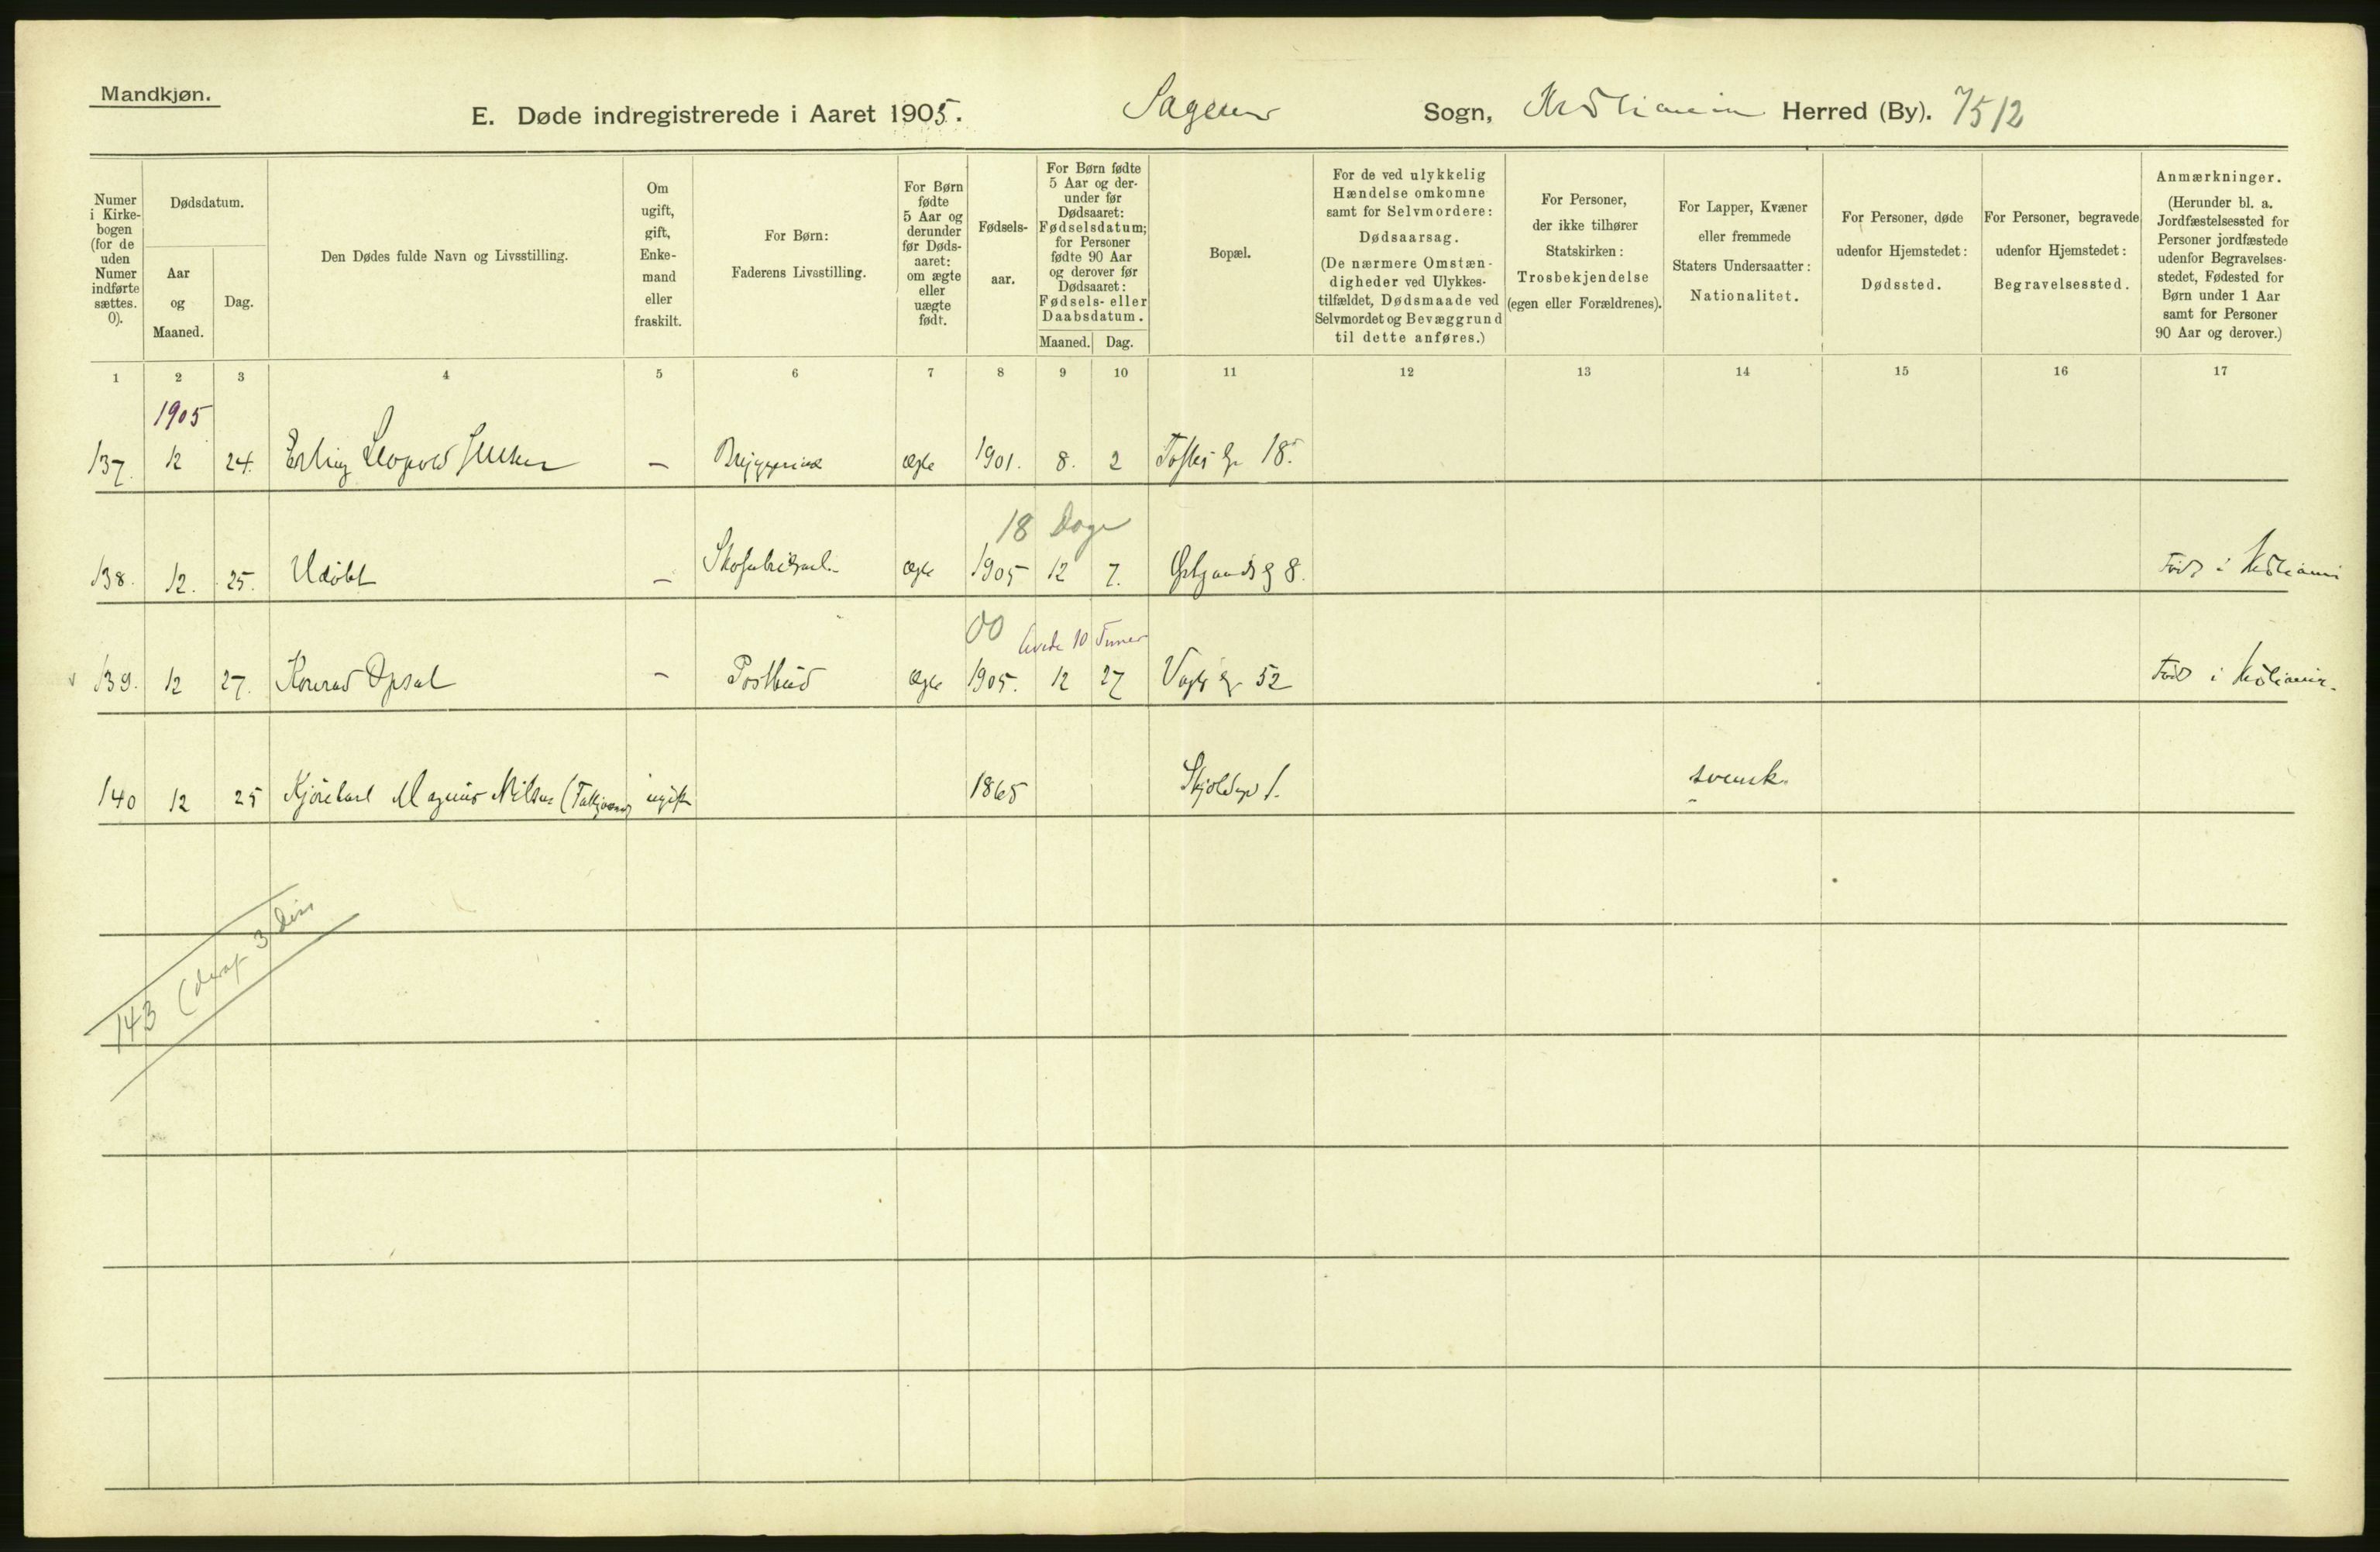 Mandkjøn.
E. Døde indregistrerede i Aaret 1905. Sagene Sogn, Kristiania Herred (By). 7512
Numer i Kirkebogen (for de uden Numer indførte sættes. 0).
Dødsdatum.
Aar og Maaned.
Dag.
Den Dødes fulde Navn og Livsstilling.
Om ugift, gift, Enkemand eller fraskilt.
For Børn: Faderens Livsstilling.
For Børn fødte 5 Aar og derunder før Dødsaaret: om ægte eller uægte født.
Fødsels-aar.
For Børn fødte 5 Aar og derunder før Dødsaaret: Fødselsdatum; for Personer fødte 90 Aar og derover før Dødsaaret: Fødsels- eller Daabsdatum.
Maaned. Dag.
Bopæl.
For de ved ulykkelig Hændelse omkomne samt for Selvmordere: Dødsaarsag. (De nærmere Omstændigheder ved Ulykkestilfældet, Dødsmaade ved Selvmordet og Bevæggrund til dette anføres.)
For Personer, der ikke tilhører Statskirken: Trosbekjendelse (egen eller Forældrenes).
For Lapper, Kvæner eller fremmede Staters Undersaatter: Nationalitet.
For Personer, døde udenfor Hjemstedet: Dødssted.
For Personer, begravede udenfor Hjemstedet: Begravelsessted.
Anmærkninger. (Herunder bl. a. Jordfæstelsessted for Personer jordfæstede udenfor Begravelsesstedet, Fødested for Børn under 1 Aar samt for Personer 90 Aar og derover.)
1 2 3 4 5 6 7 8 9 10 11 12 13 14 15 16 17
1905
137. 12 24. Erling Leopold Jensen — ægte 1901. 8. 2 Toftes g. 18.
18 Dage
138. 12. 25. Udøbt — ægte 1905 12 7. g 8. Født i Kristiania
00 levede 10 Timer
139. 12 27. Konrad Opsal — Postbud ægte 1905. 12 27 Vogts g. 52 Født i Kristiania.
140 12 25 Kjørekarl Magnus Nilsen ugift 1865 Skjoldsg 1. svensk.
143 (deraf 3